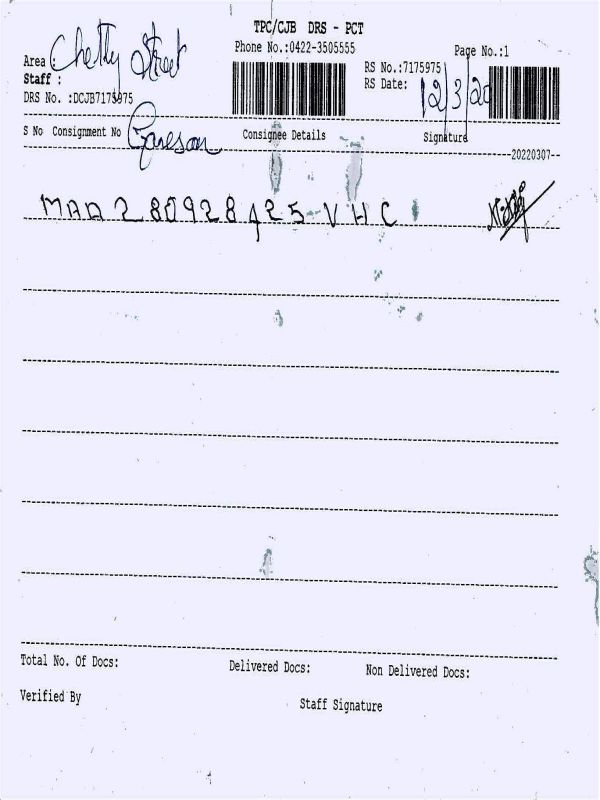 TPC/CJB DRS - PCT
Phone No.:0422-3505555
Page No.:1
Area : Chetty Street
Staff :
RS No.:7175975
RS Date: 12/3/20
DRS No. :DCJB7175975
S No Consignment No Consignee Details Signature
20220307
MAA280928425 VHC
Total No. Of Docs: Delivered Docs: Non Delivered Docs:
Verified By Staff Signature